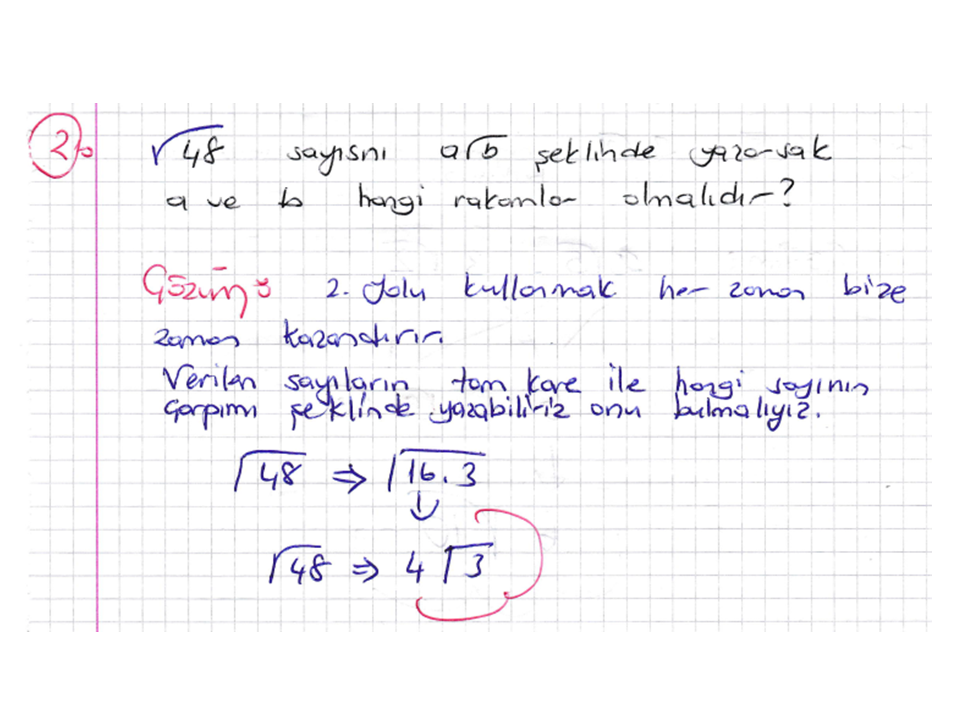 2. √48 sayısnı a√b şeklinde yazarsak
a ve b hangi rakamlar olmalıdır?
Çözüm: 2. Yolu kullanmak her zaman bize
zaman kazandırır.
Verilen sayıların tam kare ile hangi sayının
çarpımı şeklinde yazabiliriz onu bulmalıyız.
√48 ⇒ √16.3
↓
√48 ⇒ 4√3